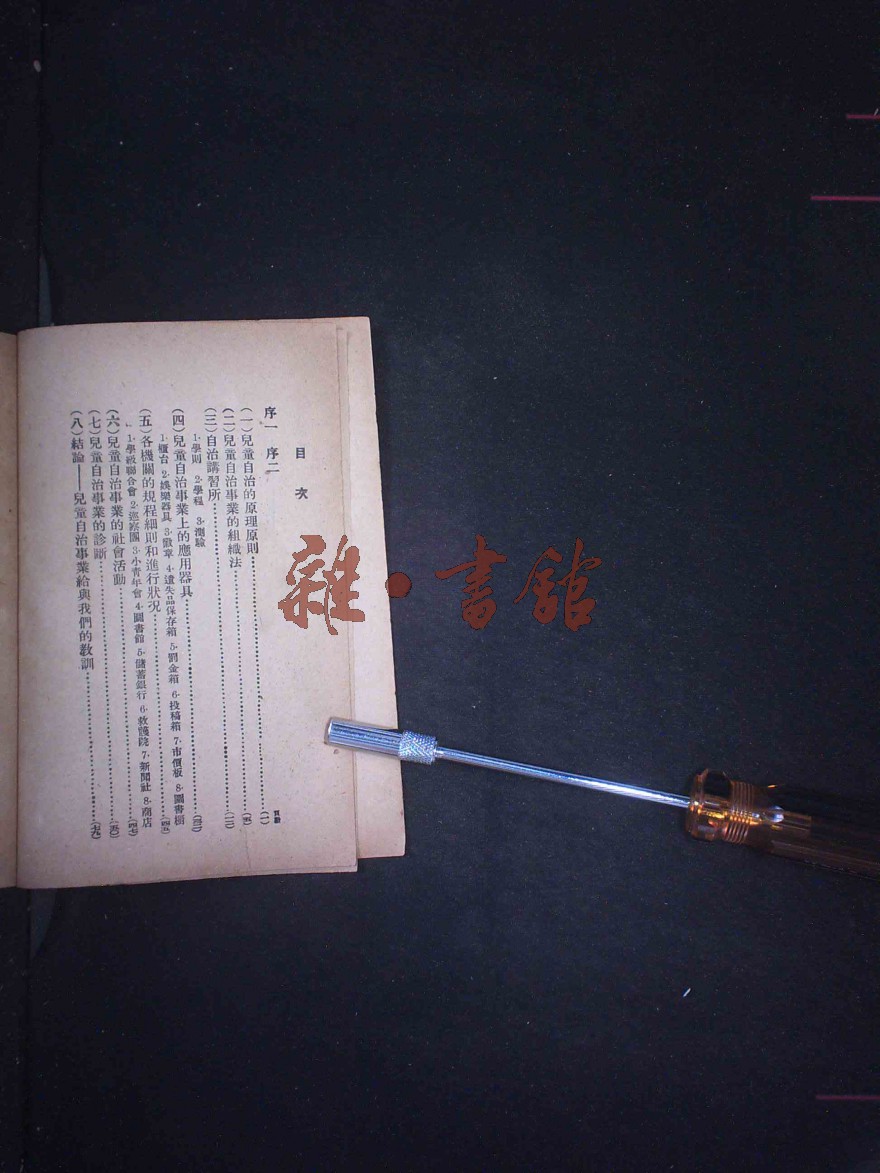 目次
頁數
序一 序二
（一）兒童自治的原理原則……（一）
（二）兒童自治事業的組織法
（三）自治講習所
1.學則 2.學程 3.測驗
（四）兒童自治事業上的應用器具
1.櫃台 2.娛樂器具 3.徽章 4.遺失品保存箱 5.罰金箱 6.投稿箱 7.市價板 8.圖書櫥
（五）各機關的規程細則和進行狀况
1.學級聯合會 2.巡察團 3.小青年會 4.圖書館 5.儲蓄銀行 6.救護院 7.新聞社 8.商店
（六）兒童自治事業的社會活動
（七）兒童自治事業的診斷
（八）結論——兒童自治事業給與我們的教訓……（七九）
雜·書館